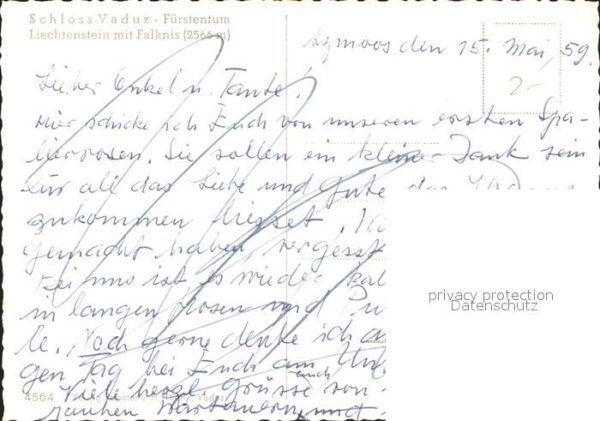 Schloss Vaduz - Fürstentum
Liechtenstein mit Falknis (2566 m)
Azmoos den 15. Mai, 59.
2.-
Lieber Onkel u. Tante!
Hier schicke ich Euch von unseren ersten Spa-
lierrosen. Sie sollen ein kleiner Dank sein
für all das Liebe und Gute das Ihr uns
zukommen liesset.
gemacht haben, vergesst
Bei uns ist es wieder kal
in langen Hosen und Pu
le. Noch gerne denke ich a
gen Tag bei Euch am Unt
auch
Viele herzl. Grüsse von
rauhen Wartauern, und
4564
Vaduz
privacy protection
Datenschutz